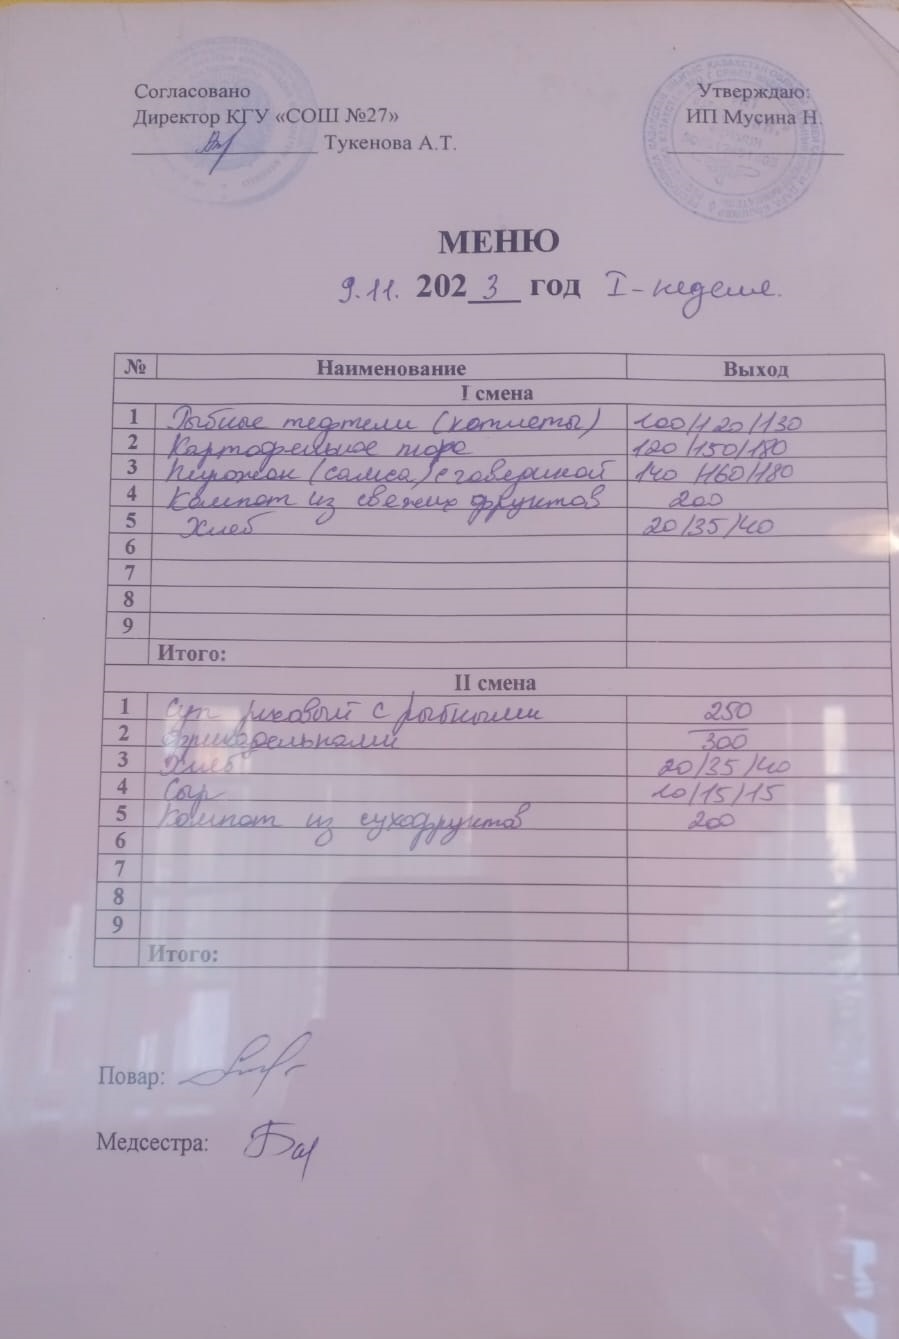 Согласовано
Утверждаю:
Директор КГУ «СОШ №27»
ИП Мусина Н.
Тукенова А.Т.
МЕНЮ
9.11. 2023 год I-неделя.
№ Наименование Выход
I смена
1 Рыбные тефтели (котлеты) 100/120/130
2 Картофельное пюре 120/150/180
3 Пирожок (самса) с говядиной 140/160/180
4 Компот из свежих фруктов 200
5 Хлеб 20/35/40
6
7
8
9
Итого:
II смена
1 Суп рисовый с рыбными 250
2 фрикадельками 300
3 Хлеб 20/35/40
4 Сыр 10/15/15
5 Компот из сухофруктов 200
6
7
8
9
Итого:
Повар:
Медсестра: